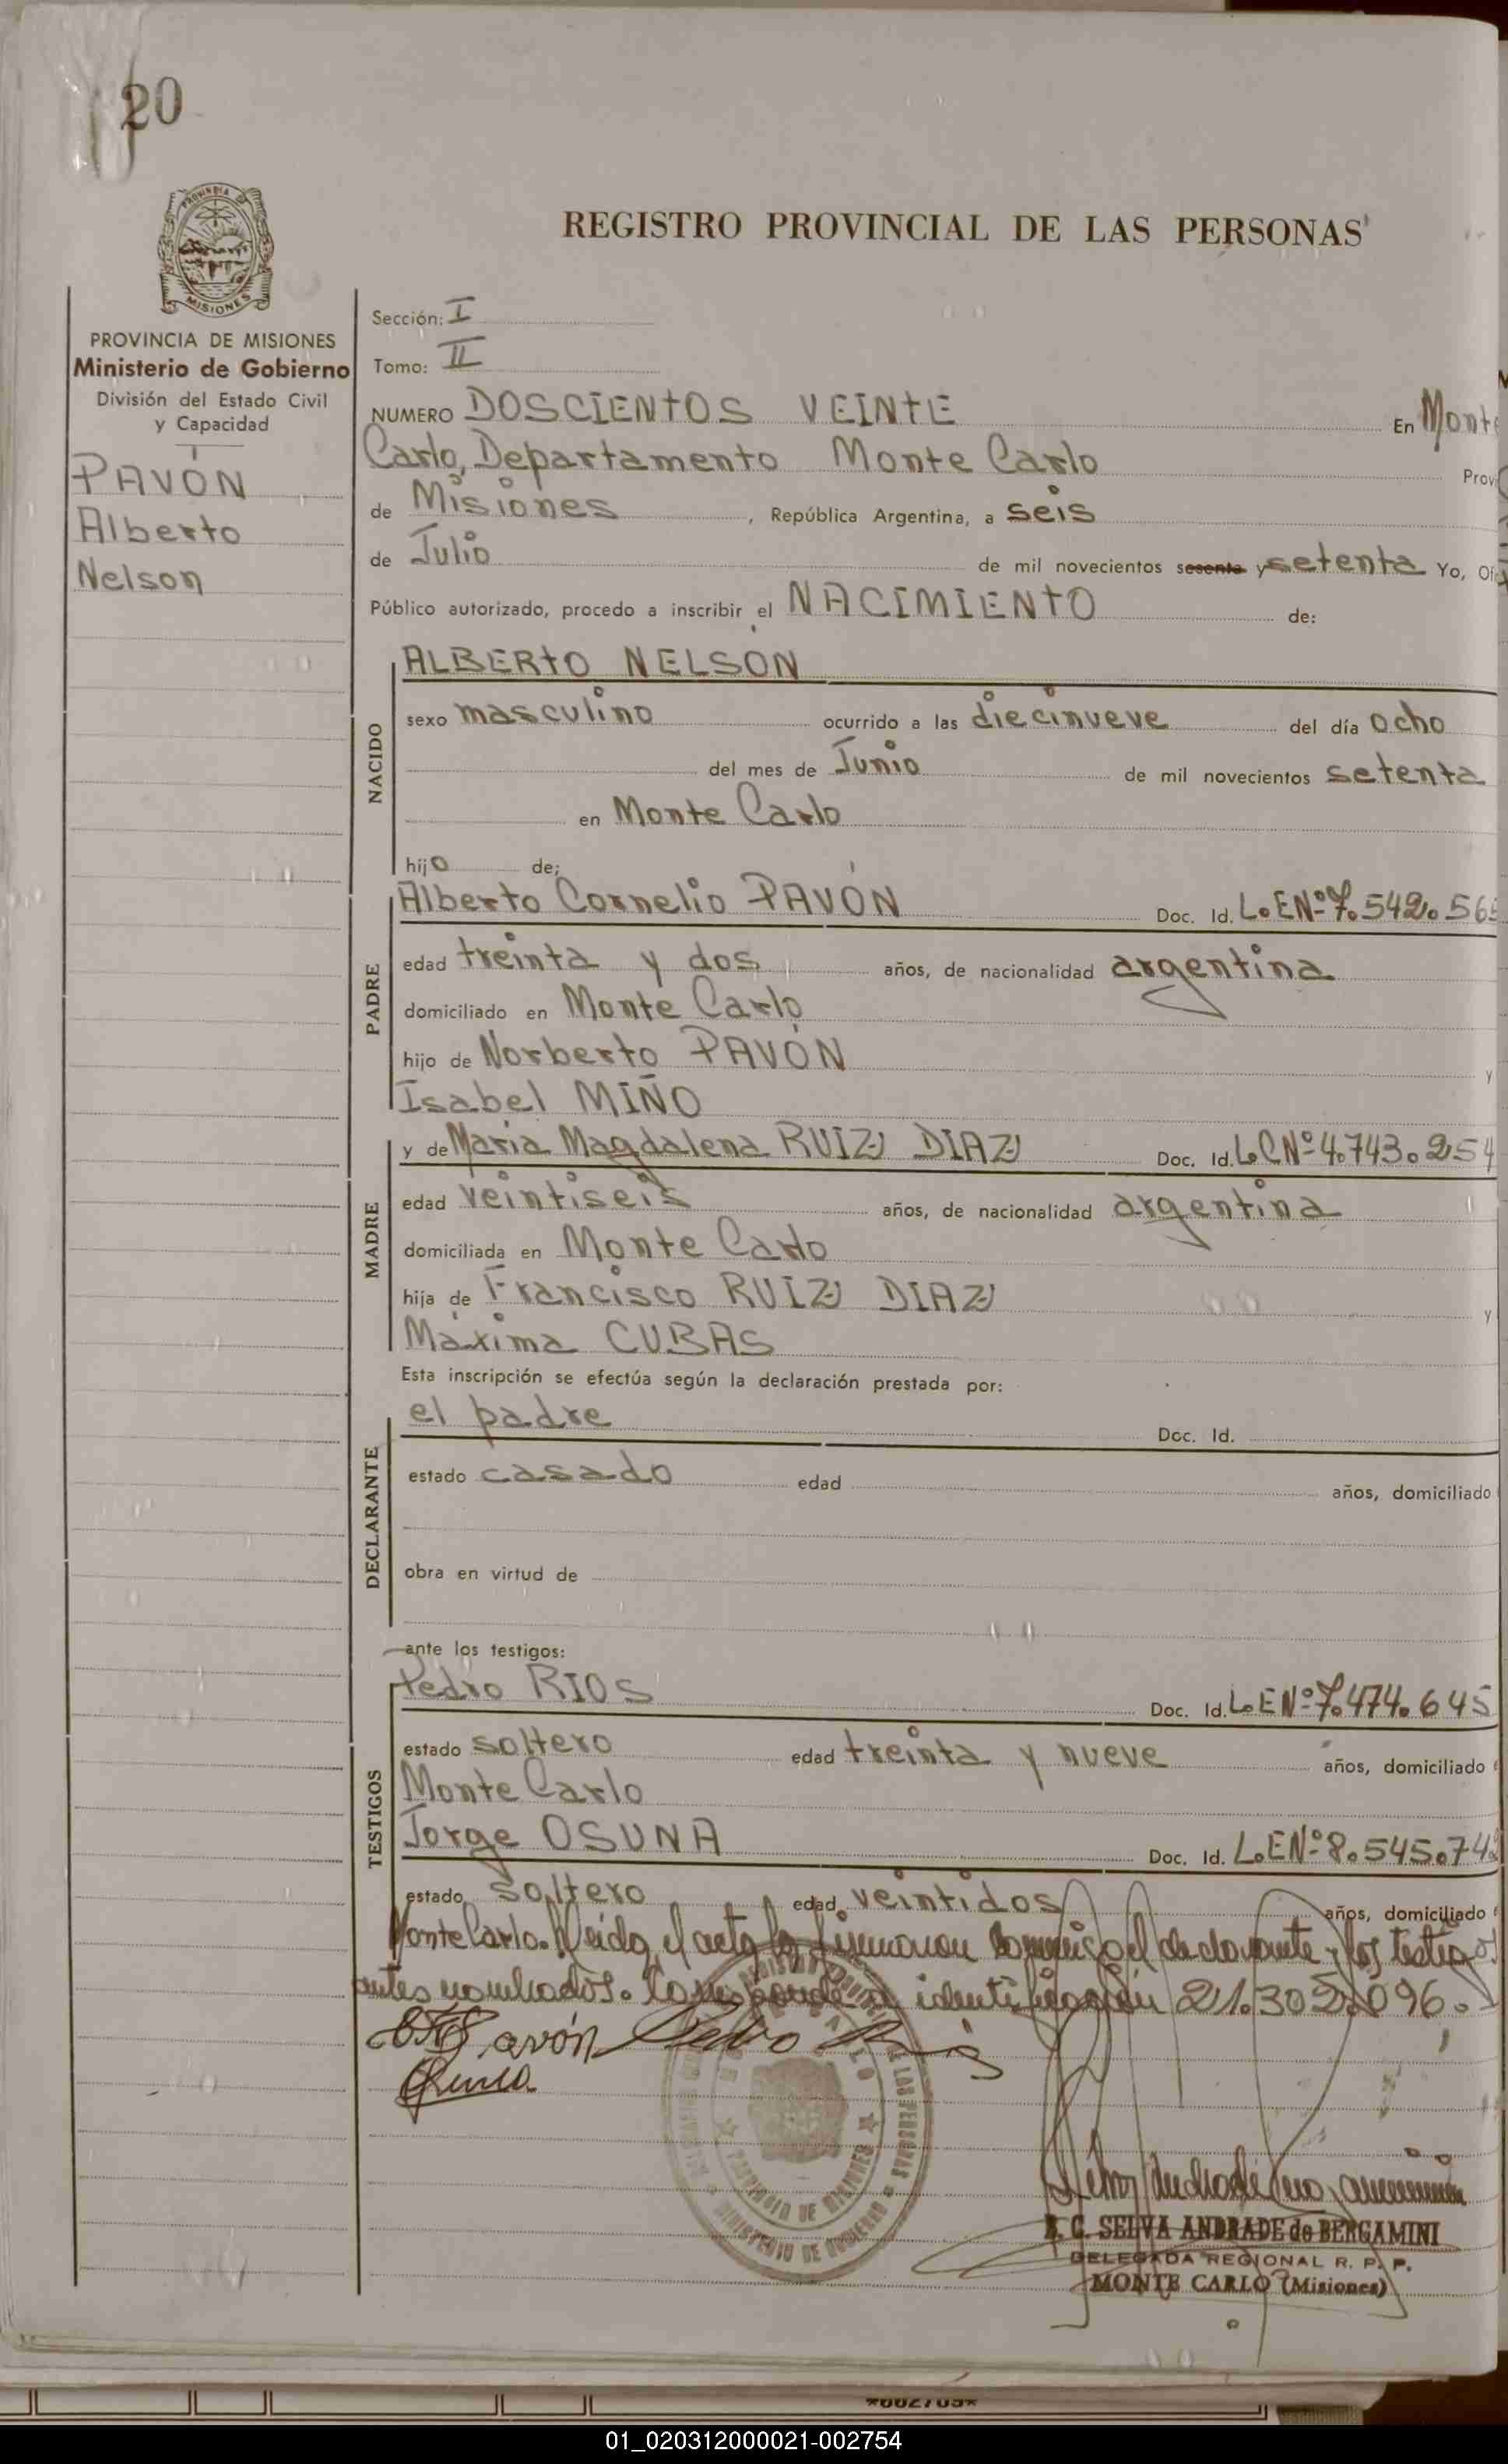 20
PROVINCIA
MISIONES
REGISTRO PROVINCIAL DE LAS PERSONAS
PROVINCIA DE MISIONES
Ministerio de Gobierno
División del Estado Civil
y Capacidad
PAVÓN
Alberto
Nelson
Sección: I
Tomo: II
NUMERO DOSCIENTOS VEINTE En Monte
Carlo, Departamento Monte Carlo Prov
de Misiones, República Argentina, a seis
de Julio de mil novecientos sesenta y setenta Yo, Of
Público autorizado, procedo a inscribir el NACIMIENTO de:
NACIDO
ALBERTO NELSON
sexo masculino ocurrido a las diecinueve del día ocho
del mes de Junio de mil novecientos setenta
en Monte Carlo
hijo de:
PADRE
Alberto Cornelio PAVÓN Doc. Id. L.E Nº 7.542.56
edad treinta y dos años, de nacionalidad argentina
domiciliado en Monte Carlo
hijo de Norberto PAVÓN y
Isabel MIÑO
MADRE
y de Maria Magdalena RUIZ DIAZ Doc. Id. L.C Nº 4.743.254
edad veintiseis años, de nacionalidad argentina
domiciliada en Monte Carlo
hija de Francisco RUIZ DIAZ y
Máxima CUBAS
Esta inscripción se efectúa según la declaración prestada por:
DECLARANTE
el padre Doc. Id.
estado casado edad años, domiciliado
obra en virtud de
ante los testigos:
TESTIGOS
Pedro RIOS Doc. Id. L.E Nº 7.474.645
estado soltero edad treinta y nueve años, domiciliado
Monte Carlo
Jorge OSUNA Doc. Id. L.E Nº 8.545.74
estado soltero edad veintidos años, domiciliado
Monte Carlo. Leida el acta la firmaron conmigo el declarante y los testigos
antes nombrados. Corresponde a identificación 21.305.096.
Pavón Pedro Rios
PROVINCIA DE MISIONES
MINISTERIO DE GOBIERNO
B. C. SELVA ANDRADE de BERGAMINI
DELEGADA REGIONAL R. P. P.
MONTE CARLO (Misiones)
01_020312000021-002754